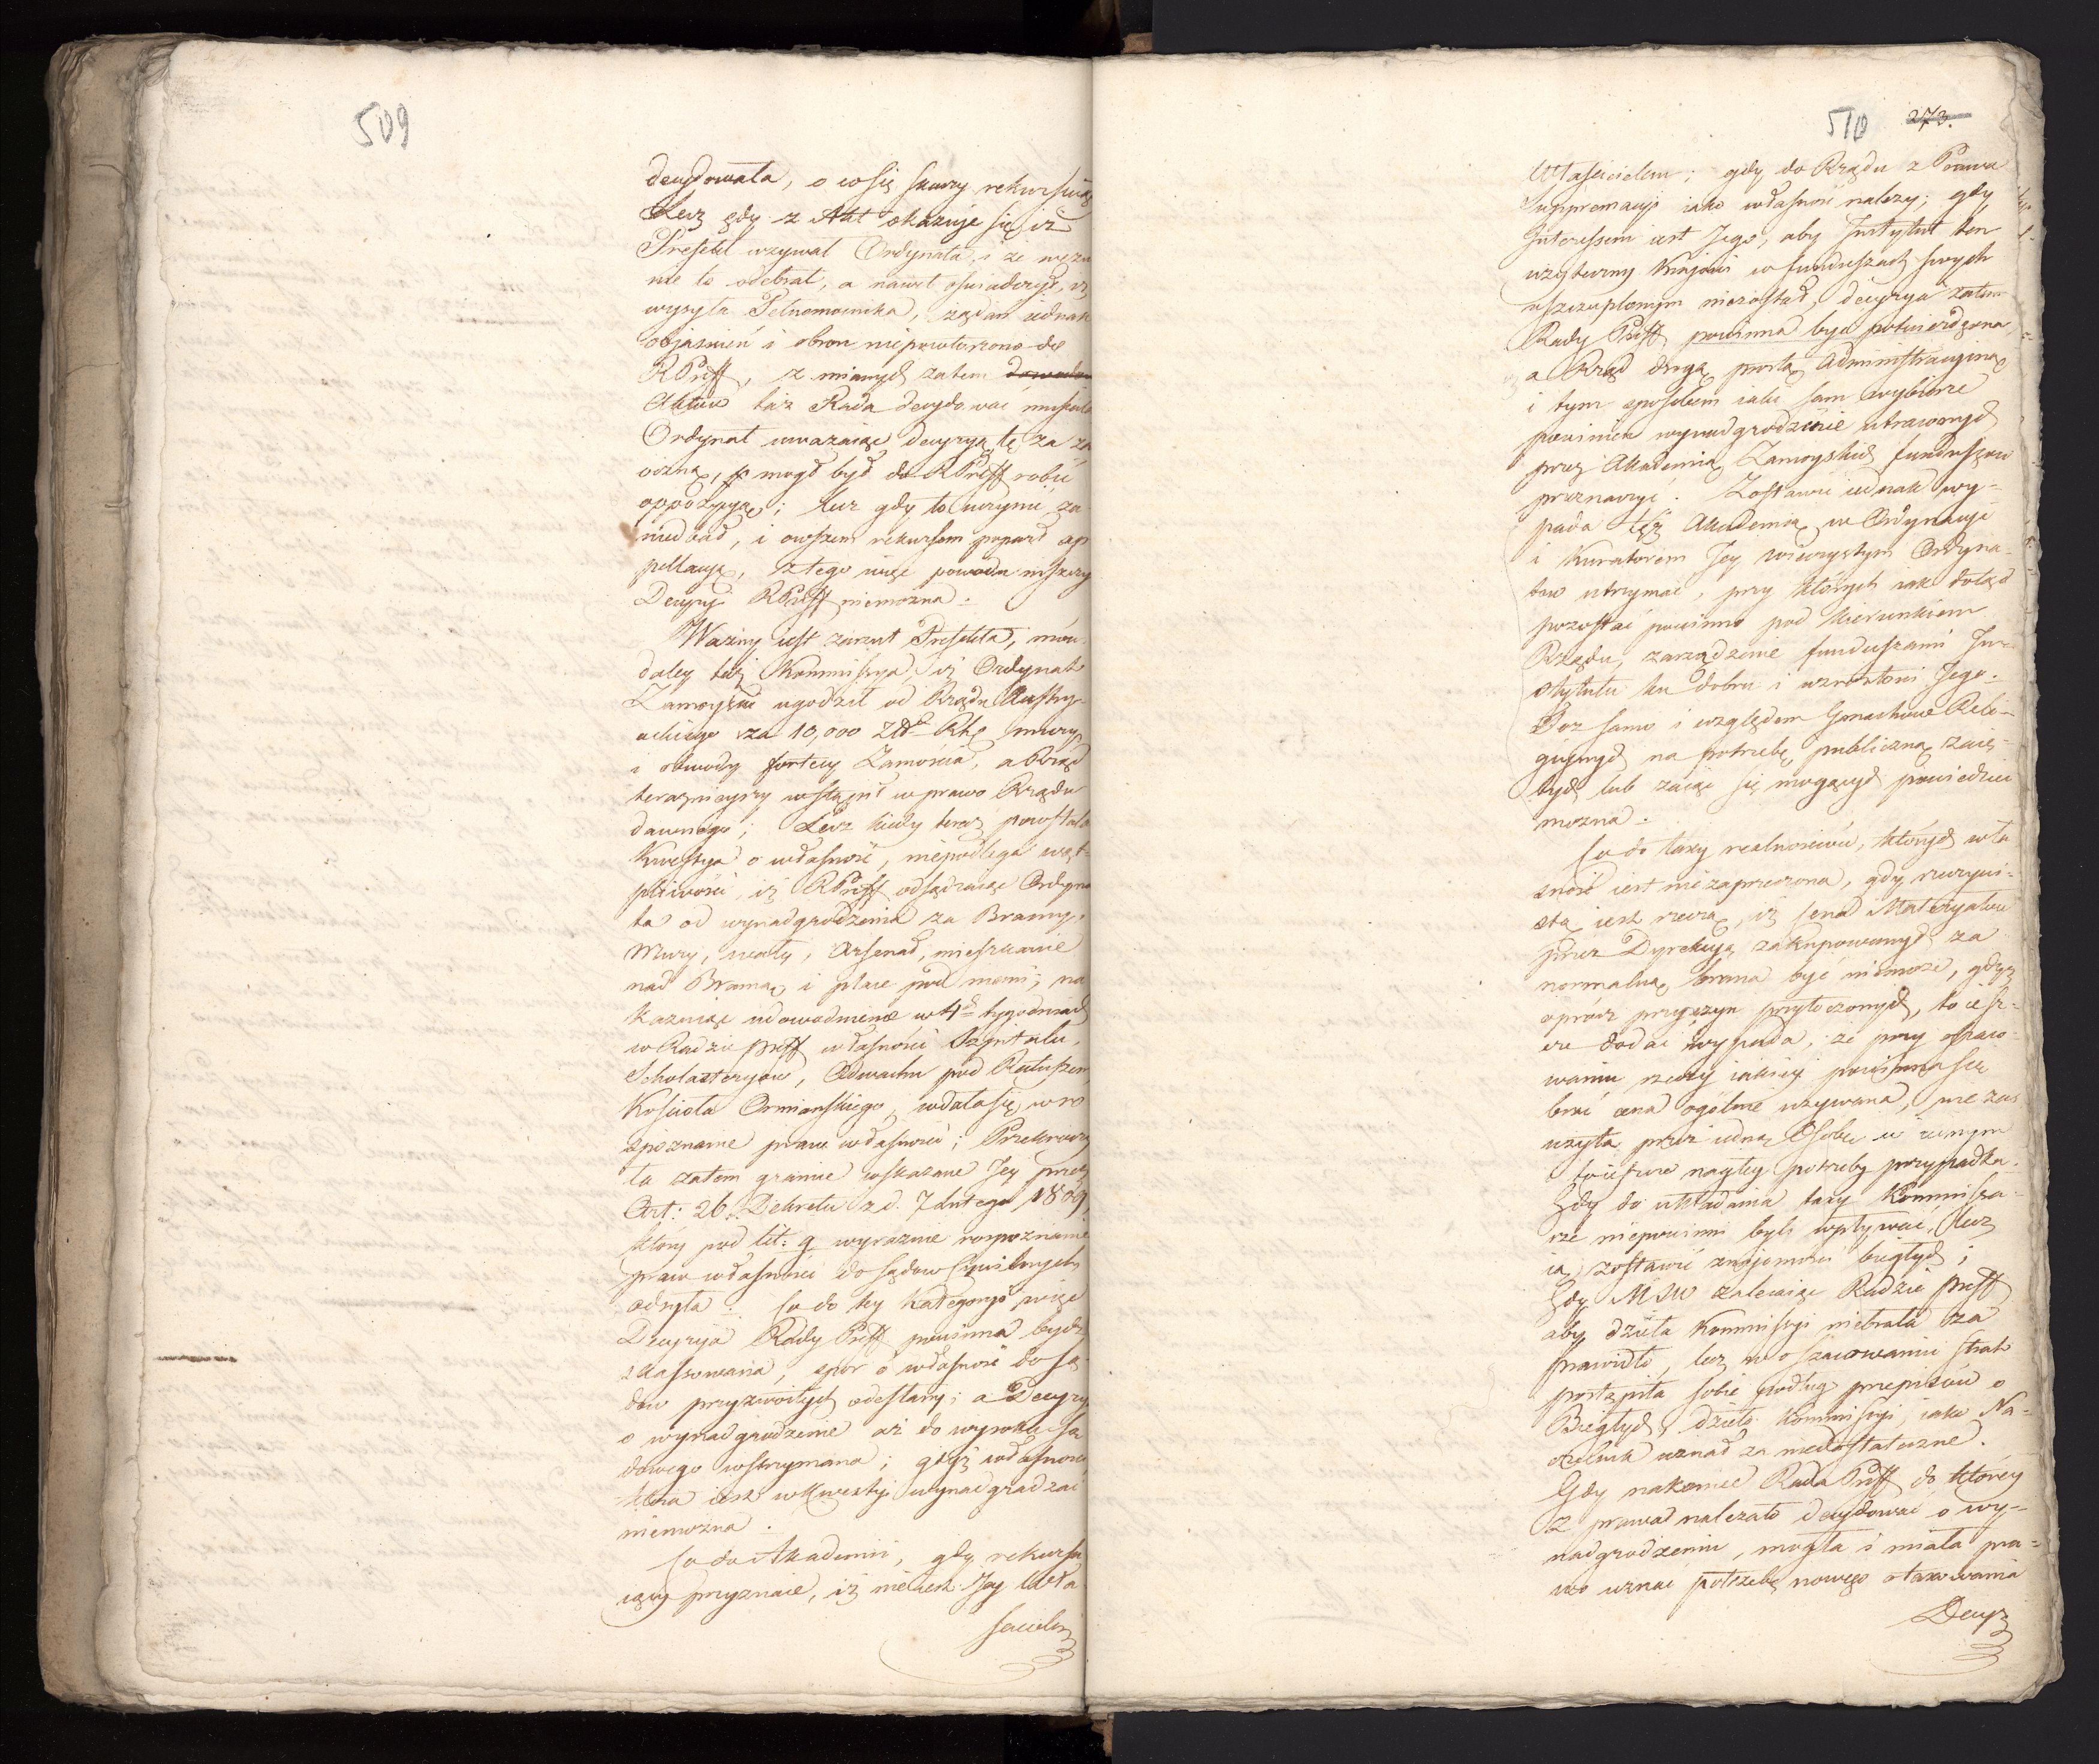 509
decydowała, o co się skarży rekursuiąc
Lecz gdy z Akt okazuie się iż
Prefekt wzywał Ordynata, i że wezwa
nie to odebrał, a nawet oświadczył, iż
wysyła Pełnomocnika, żądań iednak
objaśnień i obron niepowtarzono do
RPreff, z mianych zatem
Aktów taż Rada decydować musiała
Ordynat uważaiąc decyzyą tę za za
oczną, mógł był do RPreff robić
oppozycyą; lecz gdy to uczynić za
niedbał, i owszem rekursem poparł ap
pellacyą, z tego więc powodu niszczyć
Decyzyi RPreff niemożna.
Ważny iest zarzut Prefekta, mówi
daley taż Kommissya, iż Ordynat
Zamoyski ugodził od Rządu Austry-
ackiego za 10,000 mury
i obwody fortecy Zamościa, a Rząd
teraźnieyszy wstąpił w prawo Rządu
dawnego; Lecz kiedy teraz powstała
Kwestya o własność, niepodlega wąt-
pliwości, iż RPreff odsądzaiąc Ordyna
ta od wynadgrodzenia za Bramy,
Mury, wały, Arsenał, mieszkanie
nad Bramą i place pod niemi; na
kazuiąc udowodnienie w 4ch tygodniach
w Radzie Preff własności Szpitalu,
Scholasteryow, Odwachu pod Ratuszem,
Kościoła Ormiańskiego, wdała się w ro
spoznanie praw własności; Przekroczy
ła zatem granice wskazane Jey przez
Art: 26. Dekretu z d. 7 Lutego 1809,
który pod lit: g wyraźnie rozpoznanie
praw własności do sądow Cywilnych
odsyła. Co do tey kategoryi więc
Decyzya Rady Preff powinna bydź
skassowana, spor o własność do są
dow przyzwoitych odesłany; a Decyzya
o wynadgrodzenie aż do wyroku są
dowego wstrzymana; gdyż własności
która iest w Kwestyi wynadgradzać
niemożna.
Co do Akademii, gdy rekursu
iący przyznaie, iż nie iest Jey Wła
ścicielem
510 273.
Właścicielem; gdy do Rządu z Prawa
Suppremacyi iako własność należy; gdy
Interessem iest Jego, aby Instytut ten
użyteczny Kraiowi w funduszach swych
uszczuplonym niezostał, decyzya zatem
Rady Preff powinna być potwierdzona
a Rząd drogą prostą Administracyiną
i tym sposobem iaki sam wybierze
powinien wynadgrodzenie utraconych
przez Akademią Zamoyską funduszow
przeznaczyć. Zostawić iednak wy-
pada tęż Akademią w Ordynacyi
i Kuratorem Jey wieczystym Ordyna-
tow utrzymać, przy których iak dotąd
pozostać powinno pod kierunkiem
Rządu, zarządzenie funduszami In-
stytutu ku dobru i wzrostowi Jego.
Toż samo i względem Gmachow Reli-
giynych na potrzebę publiczną zaię-
tych lub zaiąć się mogących powiedzieć
można.
Co do taxy realnościów, których wła
sność iest niezaprzeczona, gdy rzeczywi-
stą iest rzeczą, iż cena Materyałow
przez Dyrekcyą zakupowanych za
normalną brana być niemoże, gdyż
oprócz przyczyn przytoczonych, to iesz-
cze dodać wypada, że przy oszaco-
waniu rzeczy iakiey powinna się
brać cena ogólnie używana, nie zaś
użyta przez iedną Osobę w iednym
i to ieszcze nagłey potrzeby przypadku.
Gdy do układania taxy Kommissa-
rze niepowinni byli wpływać, lecz
ią zostawić znaiomości biegłych;
Gdy MSW zalecaiąc Radzie Preff
aby dzieła Kommissyi niebrała za
prawidło, lecz w oszacowaniu strat
postąpiła sobie podług przepisów o
Biegłych, dzieło Kommissyi, iako Na-
czelnik uznał za niedostateczne.
Gdy nakoniec Rada Preff do którey
z prawa należało decydować o wy-
nadgrodzeniu, mogła i miała pra-
wo uznać potrzebę nowego otaxowania
Decyz